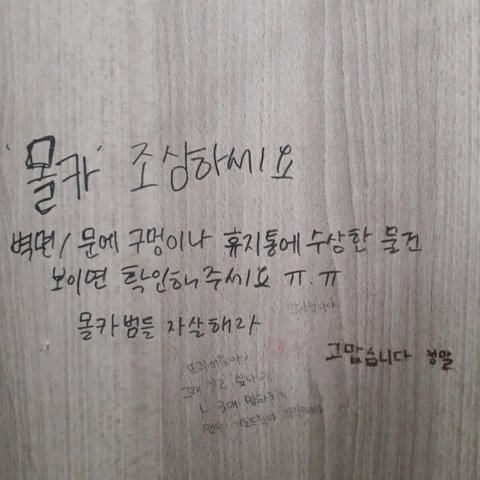 '몰카' 조심하세요
벽면/문에 구멍이나 휴지통에 수상한 물건
보이면 확인해주세요 ㅠ.ㅠ
감사합니다
몰카범들 자살해라
고맙습니다 정말